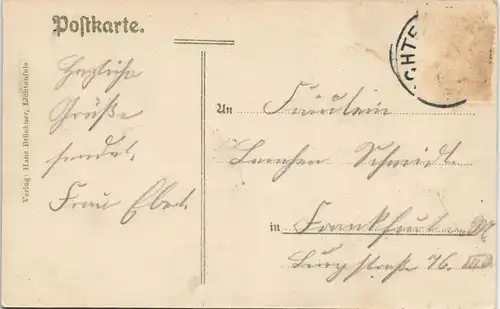 Postkarte.
Herzliche
Grüße
sendet
Frau Eber
An Fräulein
Lenchen Schmidt.
in Frankfurt a/M
Burgstraße 76. III
Verlag: Hans Brückner, Lichtenfels
CHTE